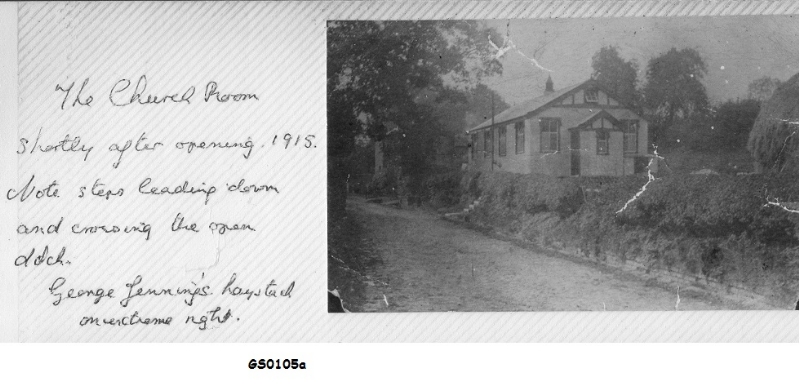 The Church Room
shortly after opening. 1915.
Note steps leading down
and crossing the open
ditch.
George Jennings. haystack
on extreme right.
GS0105a